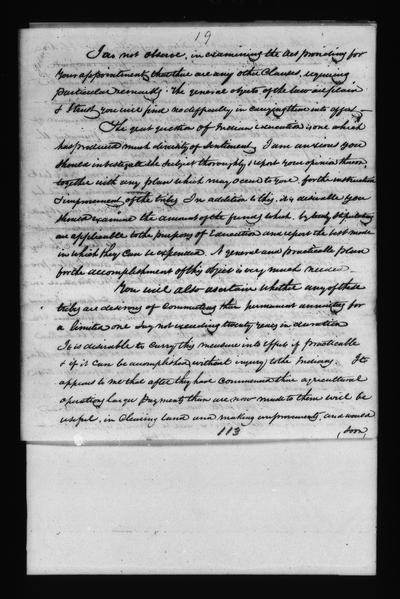 19
I do not observe, in examining the Act providing for
your appointment, that there are any other Clauses, requiring
particular remarks. The general objects of the law are plain
& I trust you will find no difficulty in carrying them into effect.
The great question of Indian education is one which
has produced much diversity of sentiment. I am anxious you
should investigate the subject thoroughly, & report your opinion thereon
together with any plan which may occur to you, for the instruction
& improvement of the tribes. In addition to this, it is desirable you
should examine the amount of the funds which, by treaty stipulations
are applicable to the purposes of Education and report the best mode
in which they can be expended. A general and practicable plan
for the accomplishment of this object is very much needed.
You will also ascertain whether any of these
tribes are desirous of commuting their permanent annuities for
a limited one say not exceeding twenty years in duration
It is desirable to carry this measure into effect if practicable
& if it can be accomplished without injury to the Indians. It
appears to me that after they have commenced their agricultural
operations larger payments than are now made to them will be
useful, in clearing land and making improvements, and would
113
soon